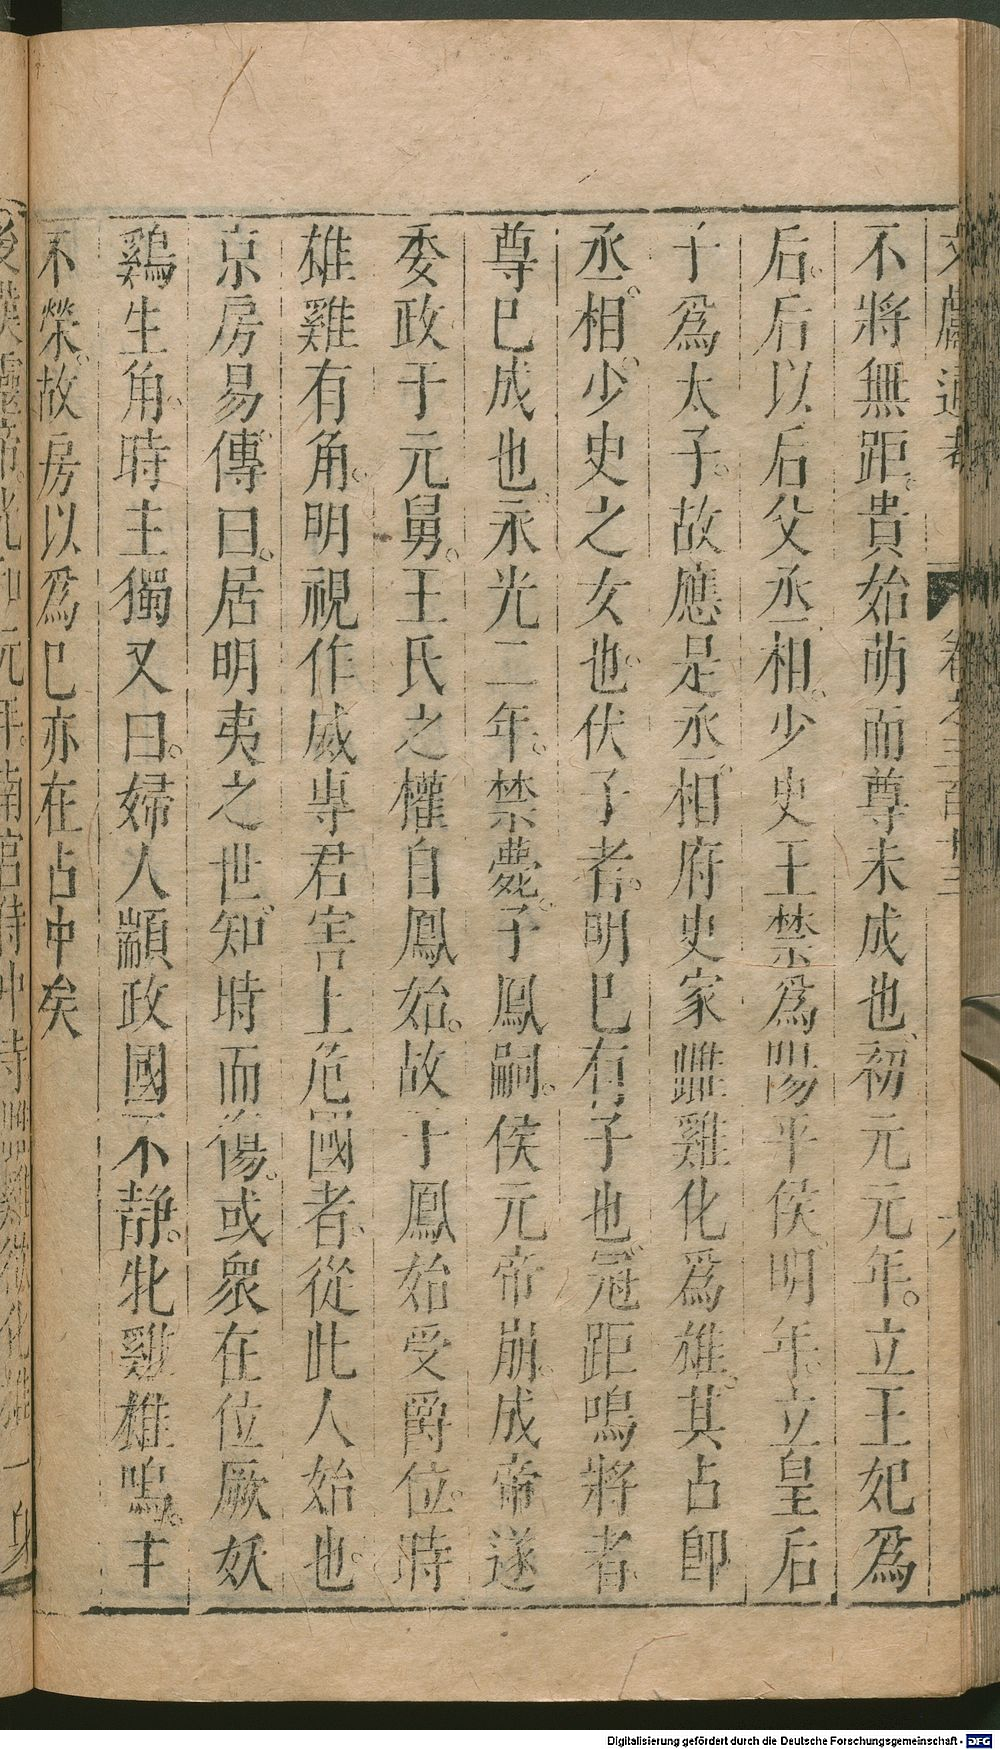 文獻通考 卷之三百十三 六
不將無距貴始萌而尊未成也初元元年。立王妃爲
后。后以后父丞相。少史王禁爲陽平侯明年。立皇后
子爲太子。故應是丞相府史家雌雞化爲雄。其占即
丞相。少史之女也。伏子者。明已有子也冠距鳴將者。
尊已成也永光二年。禁薨。子鳳嗣。侯元帝崩。成帝遂
委政于元舅。王氏之權自鳳始。故于鳳始受爵位。時
雄雞有角。明視作威專君害上危國者。從此人始也。
京房易傳曰。居明夷之世知時而傷。或衆在位厥妖
鷄生角。時主獨又曰。婦人顓政國不静。牝雞雄鳴。主
不榮。故房以爲已亦在占中矣
後漢靈帝光和元年。南宮侍中寺雌雞欲化雄一身
Digitalisierung gefördert durch die Deutsche Forschungsgemeinschaft - DFG